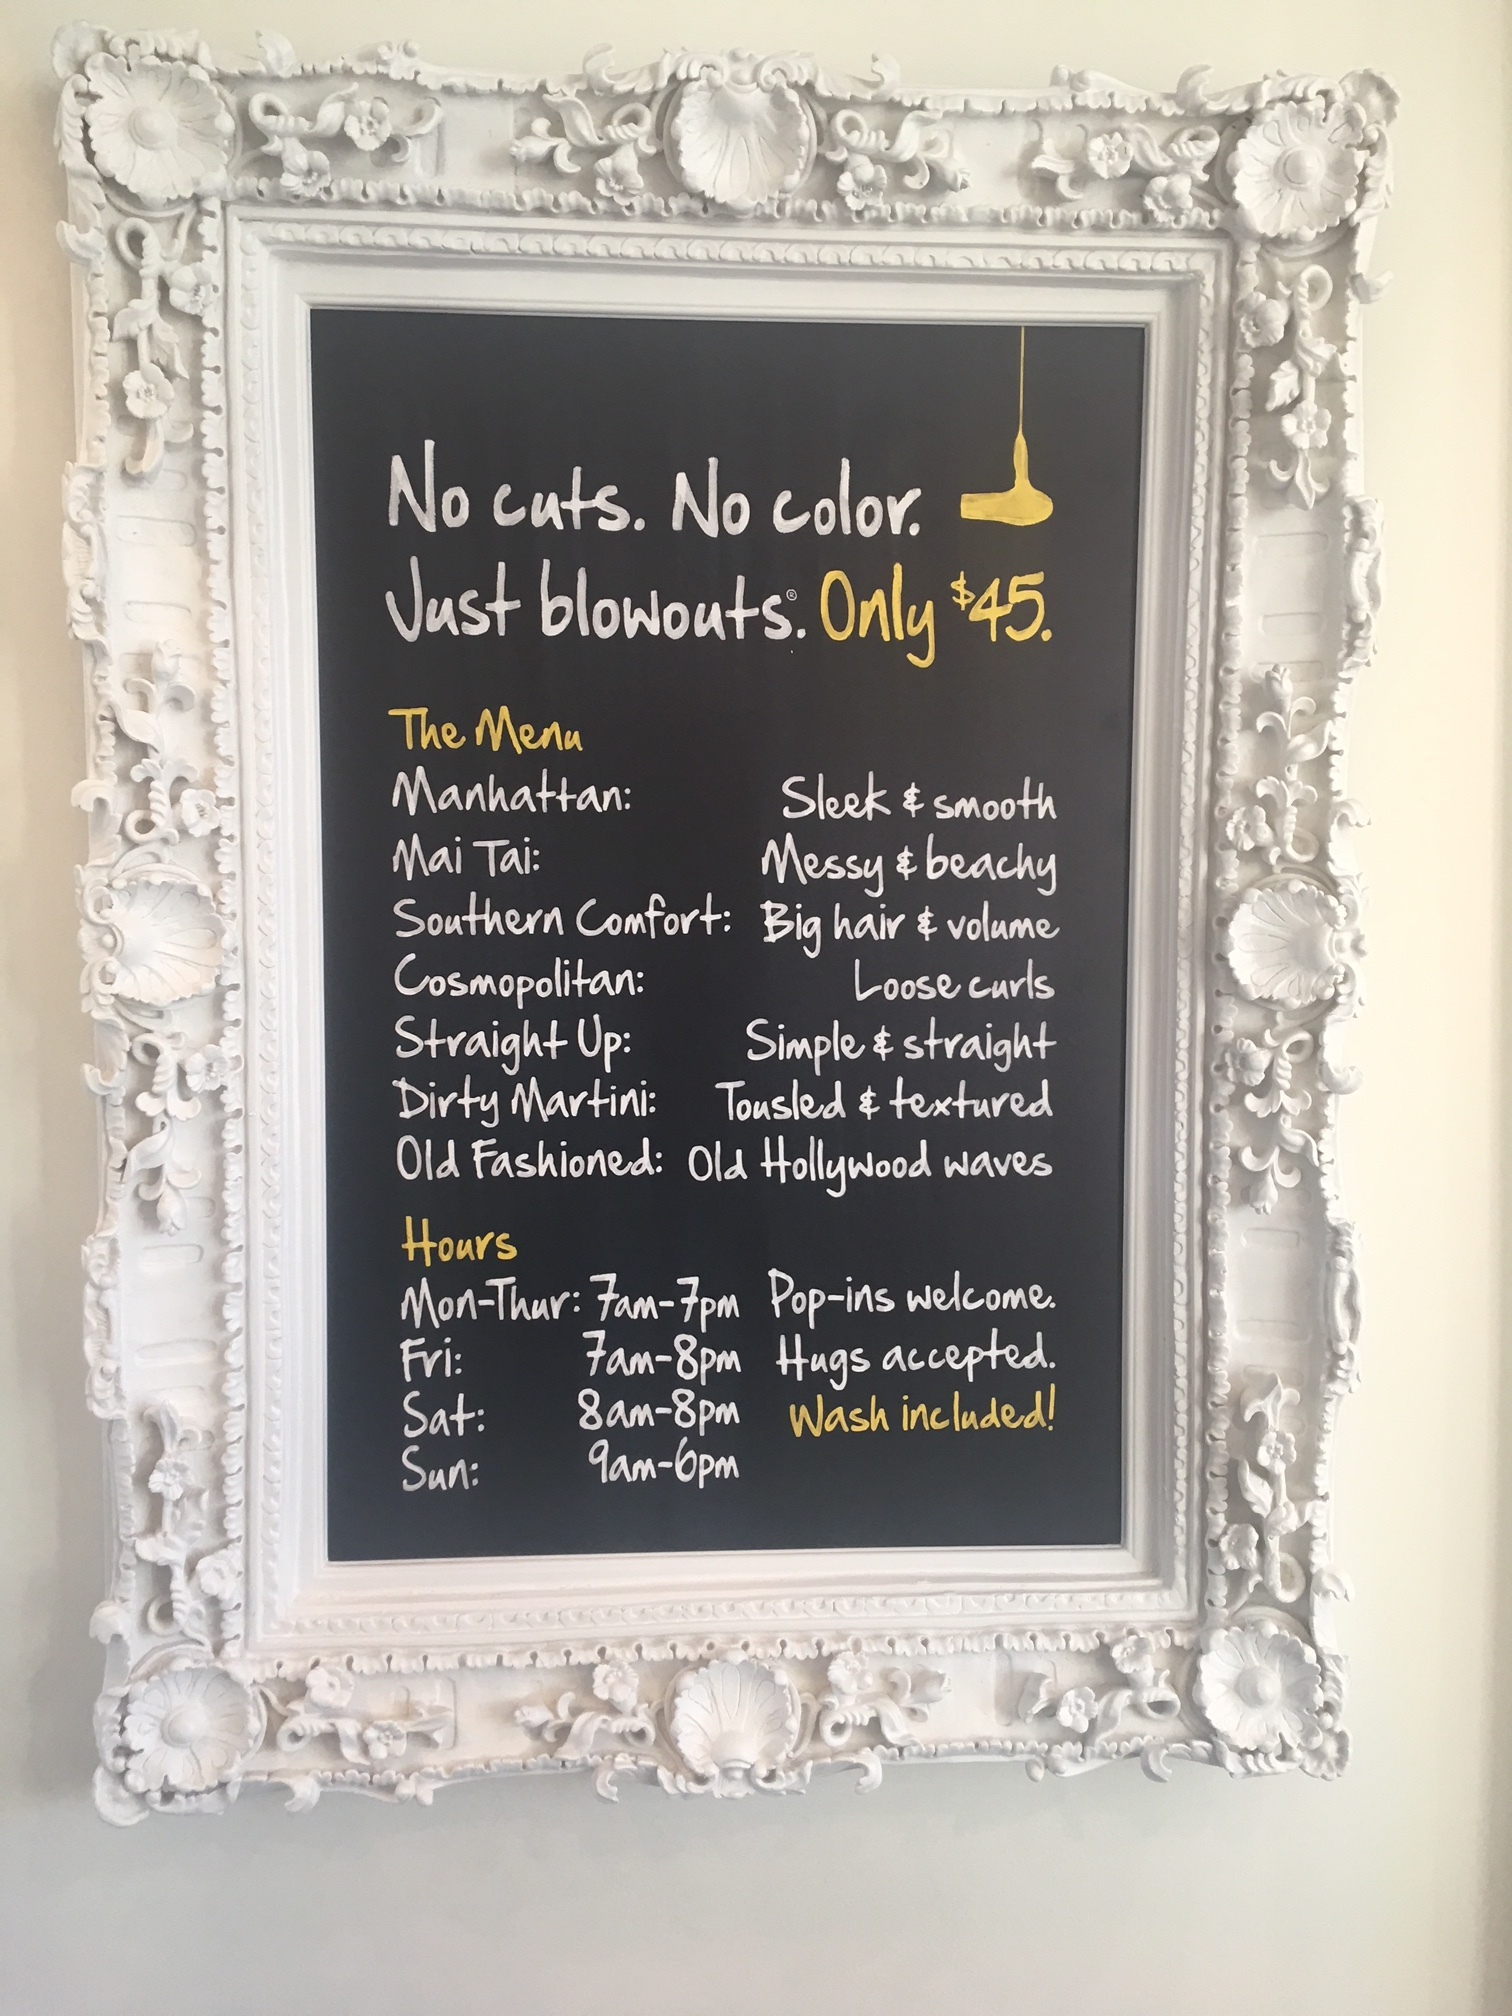 No cuts. No color.
Just blowouts®. Only $45.
The Menu
Manhattan: Sleek & smooth
Mai Tai: Messy & beachy
Southern Comfort: Big hair & volume
Cosmopolitan: Loose curls
Straight Up: Simple & straight
Dirty Martini: Tousled & textured
Old Fashioned: Old Hollywood waves
Hours
Mon-Thur: 7am-7pm Pop-ins welcome.
Fri: 7am-8pm Hugs accepted.
Sat: 8am-8pm Wash included!
Sun: 9am-6pm